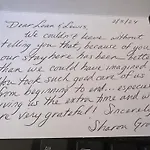 Dear Loan & Lewis,
We couldn't leave without
telling you that, because of you
our stay here has been better
than we could have imagined
You took such good care of us
from beginning to end... especially
giving us the extra time and we
are very grateful! Sincerely
Sharon